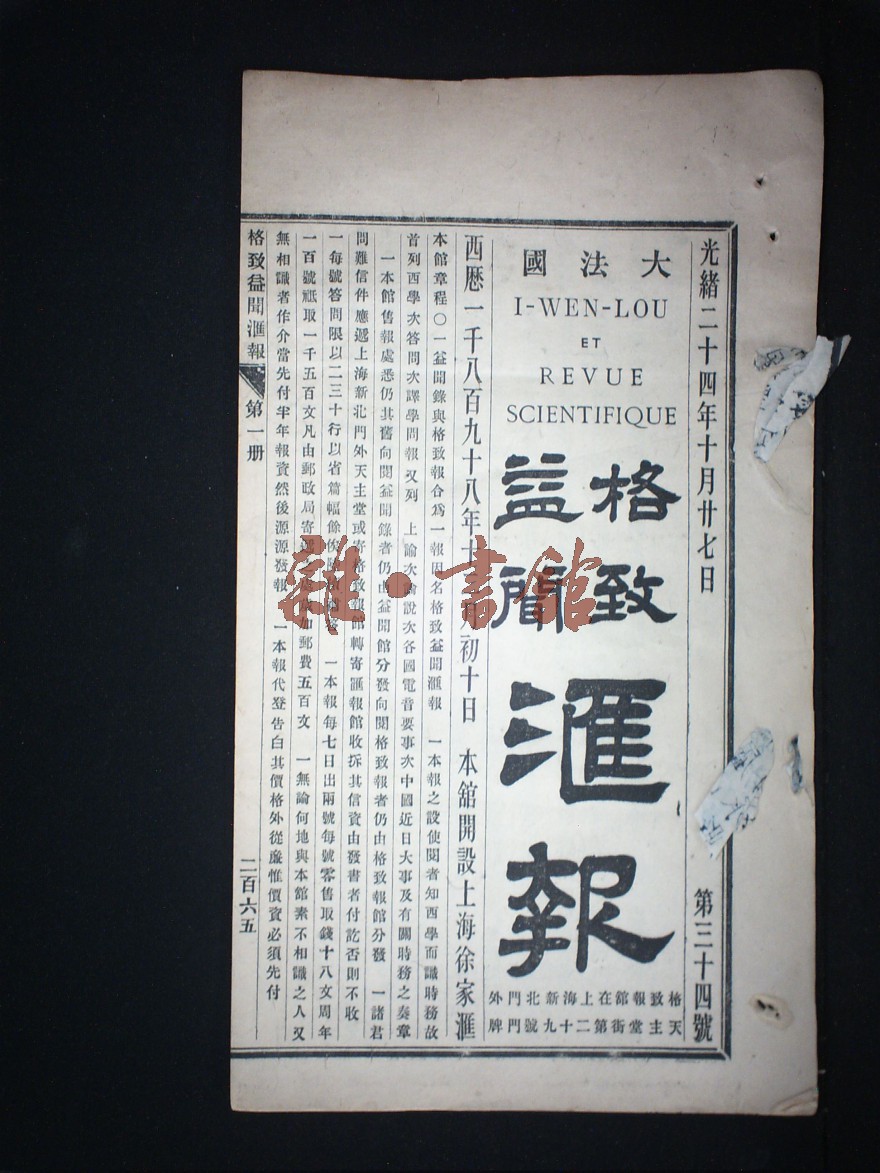 光緒二十四年十月廿七日 第三十四號
大法國
I-WEN-LOU
ET
REVUE
SCIENTIFIQUE
格致
益聞
滙報
格致報舘在上海新北門外
天主堂街第二十九號門牌
西歷一千八百九十八年十 月初十日 本舘開設上海徐家滙
本館章程〇一益聞錄與格致報合爲一報因名格致益聞滙報 一本報之設使閱者知西學而識時務故
首列西學次答問次譯學問報又列 上諭次論說次各國電音要事次中國近日大事及有關時務之奏章
一本館售報處悉仍其舊向閱益聞錄者仍由益聞館分發向閱格致報者仍由格致報館分發 一諸君
問難信件應遞上海新北門外天主堂或寄格致報館轉寄滙報館收拆其信資由發書者付訖否則不收
一每號答問限以二三十行以省篇幅餘俟 一本報每七日出兩號每號零售取錢十八文周年
一百號祗取一千五百文凡由郵政局寄遞 加郵費五百文 一無論何地與本舘素不相識之人又
無相識者作介當先付半年報資然後源源發報 一本報代登告白其價格外從廉惟價資必須先付
格致益聞滙報 第一册 二百六五
雜·書館